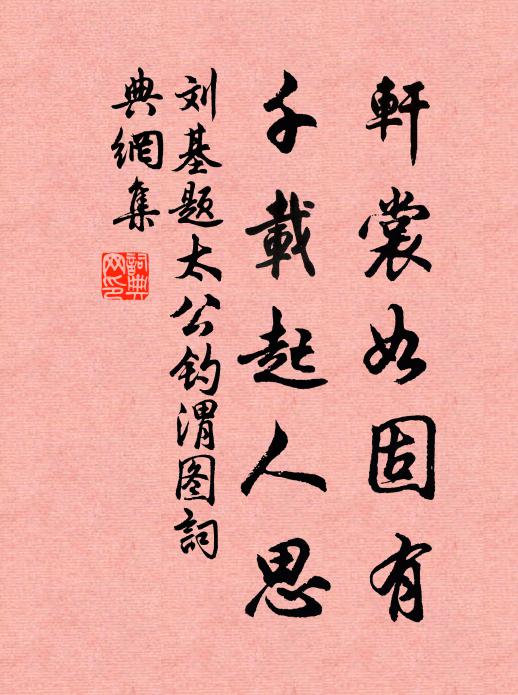 軒裳如固有
千載起人思
刘基题太公钓渭图詞
典網集
詞典
网印